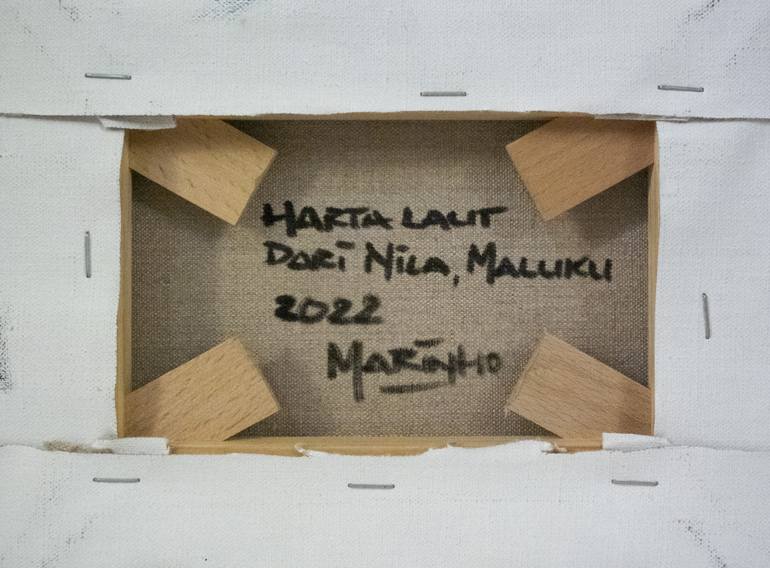 HARTA LAUT
DARI NILA, MALUKU
2022
MARINHO